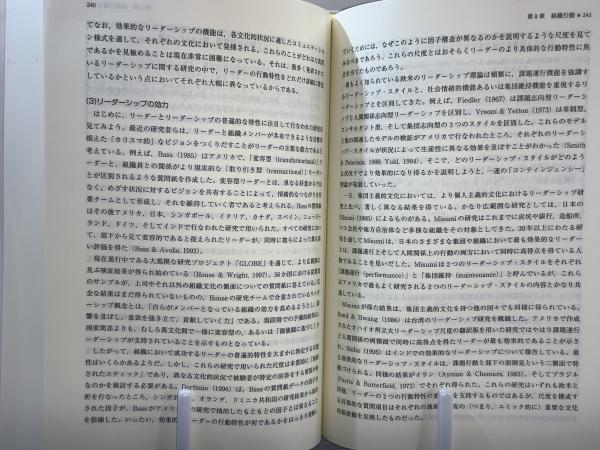 240
てなお、効果的なリーダーシップの機能は、各文化的状況に適したコミュニケーショ
ン様式を通して、それぞれの文化において発揮される。これらのことがどれほど普遍
であるかを見極めることは現在非常に困難になっている。それは、数多く発表されて
いるリーダーシップに関する研究の中で、リーダーの行動特性をどれだけ詳細に特定
しているかという点においてそれぞれ大幅に異なっているからである。
(3)リーダーシップの効力
はじめに、リーダーシップの普遍的な特性に注目して行なわれた研究を
見てみよう。最近の研究者らは、リーダーと組織メンバーが共有できるような目標に
向かった「カリスマ的」なビジョンをつくりだすことがリーダーの主要な力であると
考えている。例えば、Bass (1985) はアメリカで、「変容型 (transformational)」リーダー
と、組織員との関係がより現実的な「取り引き型 (transactional)」リーダー
とが区別されるような質問紙を作成した。変容型リーダーとは、単なる好意からでは
なく、めざす状況に対するビジョンを共有することによって、情緒的なつながりを
チームとして形成し、それを維持していく者であると考えられる。Bassの質問紙
はその後アメリカ、日本、シンガポール、イタリア、カナダ、スペイン、ニュージー
ランド、ドイツ、そしてインドで行なわれた研究で用いられた。すべての研究におい
て、部下から見て変容的であると捉えられたリーダーが、同時に彼らによって最も高
い評価を得た (Bass & Avolio, 1993)。
現在進行中である大規模な研究プロジェクト「GLOBE」を通じて、より広範囲に
及ぶ検証結果が得られ始めている (House & Wright, 1997)。56か国における異文化
のサンプルが、上司やそれ以外の組織文化の側面についての質問紙に答えている。完
全な結果はまだ得られていないものの、Houseの研究チームで合意されているリーダー
シップ概念とは、「自らがメンバーとなっている組織の効力を高めるようらしく影
響を及ぼし、意欲を掻き立て、貢献していく力」である。現段階での予備的結果は、
国家間差よりも、むしろ異文化間で一様に変容型の、あるいは「価値観に基づく」リ
ーダーシップが支持されていることを示すものとなっている。
したがって、組織において成功するリーダーの普遍的特性を大まかに特定する可能
性はいくらかあるようだ。しかし、これらの研究で用いられた尺度は本来的に「強制
されたエティック」であり、異なる文化的状況で被験者が特定の回答をする要因が何
なのかを検討する必要がある。Dorfman (1996) は、Bassの質問紙データの因子分
析を行なったところ、シンガポール、オランダ、ドミニカ共和国の研究結果から抽出
された因子が、Bassがアメリカの研究で抽出したもともとの因子とは異なることを
指摘した。いったい、効果的なリーダーの行動特性が何であるかをはっきり理解し
第8章 組織行動 ● 241
ていくためには、なぜこのように因子構造が異なるのかを説明するような尺度を見て
みるべきであろう。これらの尺度とはおそらくリーダーのより具体的な行動特性に焦
点を当てたものであろう。
最もよく知られている欧米のリーダーシップ理論は頻繁に、課題遂行機能を強調す
るリーダーシップ・スタイルと、社会情緒的機能あるいは集団維持機能を重視するリ
ーダーシップとを区別してきた。例えば、Fiedler (1967) は課題志向型リーダーシッ
プと人間関係志向型リーダーシップを区別し、Vroom & Yetton (1973) は専制型、コ
ンサルタント型、そして集団志向型の3つのスタイルを区別した。これらのモデル、
この他に提出されたモデルの検証がアメリカで行なわれたところ、それぞれのリーダー
シップ・スタイルが状況によって生産性に異なる効果を及ぼすことがわかった (Smith
& Peterson, 1988; Yukl, 1994)。そこで、どのリーダーシップ・スタイルがどのよう
な状況下でより効果的になり得るかを説明しようと、一連の「コンティンジェンシー」
理論が発展していった。
一方、集団主義文化においては、より個人主義的文化におけるリーダーシップ研究
と比べて、著しく異なる結果を得ている。かなり広範囲な研究としては、日本の
Misumi (1985) によるものがある。Misumiの研究はこれまでに炭坑や銀行、造船所、
バス会社や地方自治体など多様な組織をその対象としてきた。30年以上にわたる研
究を通じてMisumiは、日本のさまざまな集団や組織において最も効果的なリーダー
とは、課題遂行と人間関係上の行動の両方において同時に高得点を得ている人物
であることを見いだした。Misumiは2つのリーダーシップ・スタイルをそれぞれ
「課題遂行 (performance)」と「集団維持 (maintenance)」と呼んでいるが、これら
はアメリカで最もよく研究される2つのリーダーシップ・スタイルの内容とかなり共
通している。
Misumiが得た結果は、集団主義的文化を持つ他の国々でも同様に得られている。
Bond & Hwang (1986) は台湾のリーダーシップ研究を概観し、アメリカで作成
されたオハイオ州立大リーダーシップ尺度の翻訳版を用いた研究ではやはり課題遂行
と人間関係の両側面で同時に高得点を得たリーダーが最も効果的であることが示さ
れた。Sinha (1995) はインドでの効果的なリーダーシップについて報告している。最
も効果的なリーダーシップ・スタイルは、課題行動と部下の面倒見という二側面で特
徴づけられる。同様の結果がイラン (Ayman & Chemers, 1983)、そしてブラジル
(Farris & Butterfield, 1972) でそれぞれ得られた。これらの研究はいずれも欧米の
同様、リーダーの2つの行動特性の重要性を支持するものではあるが、尺度を構成す
る具体的な質問項目はそれぞれの地域に固有の(つまり、エミック的に)重要な文化
的価値観を反映したものだった。